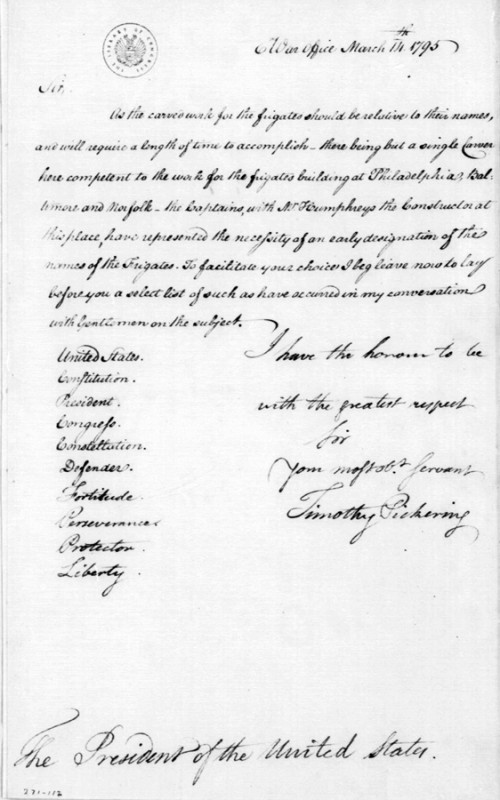 THE LIBRARY OF CONGRESS
War Office March 14th 1795
Sir,
As the carved work for the frigates should be relative to their names,
and will require a length of time to accomplish – there being but a single Carver
here competent to the work for the frigates building at Philadelphia, Bal-
timore and Norfolk – the Captains, with Mr Humphreys the Constructor at
this place, have represented the necessity of an early designation of the
names of the Frigates. To facilitate your choice I beg leave now to lay
before you a select list of such as have occurred in my conversation
with Gentlemen on the subject.
United States.
Constitution.
President.
Congress.
Constellation.
Defender.
Fortitude.
Perseverance
Protector.
Liberty.
I have the honour to be
with the greatest respect
Sir
Your most obt. Servant
Timothy Pickering
The President of the United States.
271-112